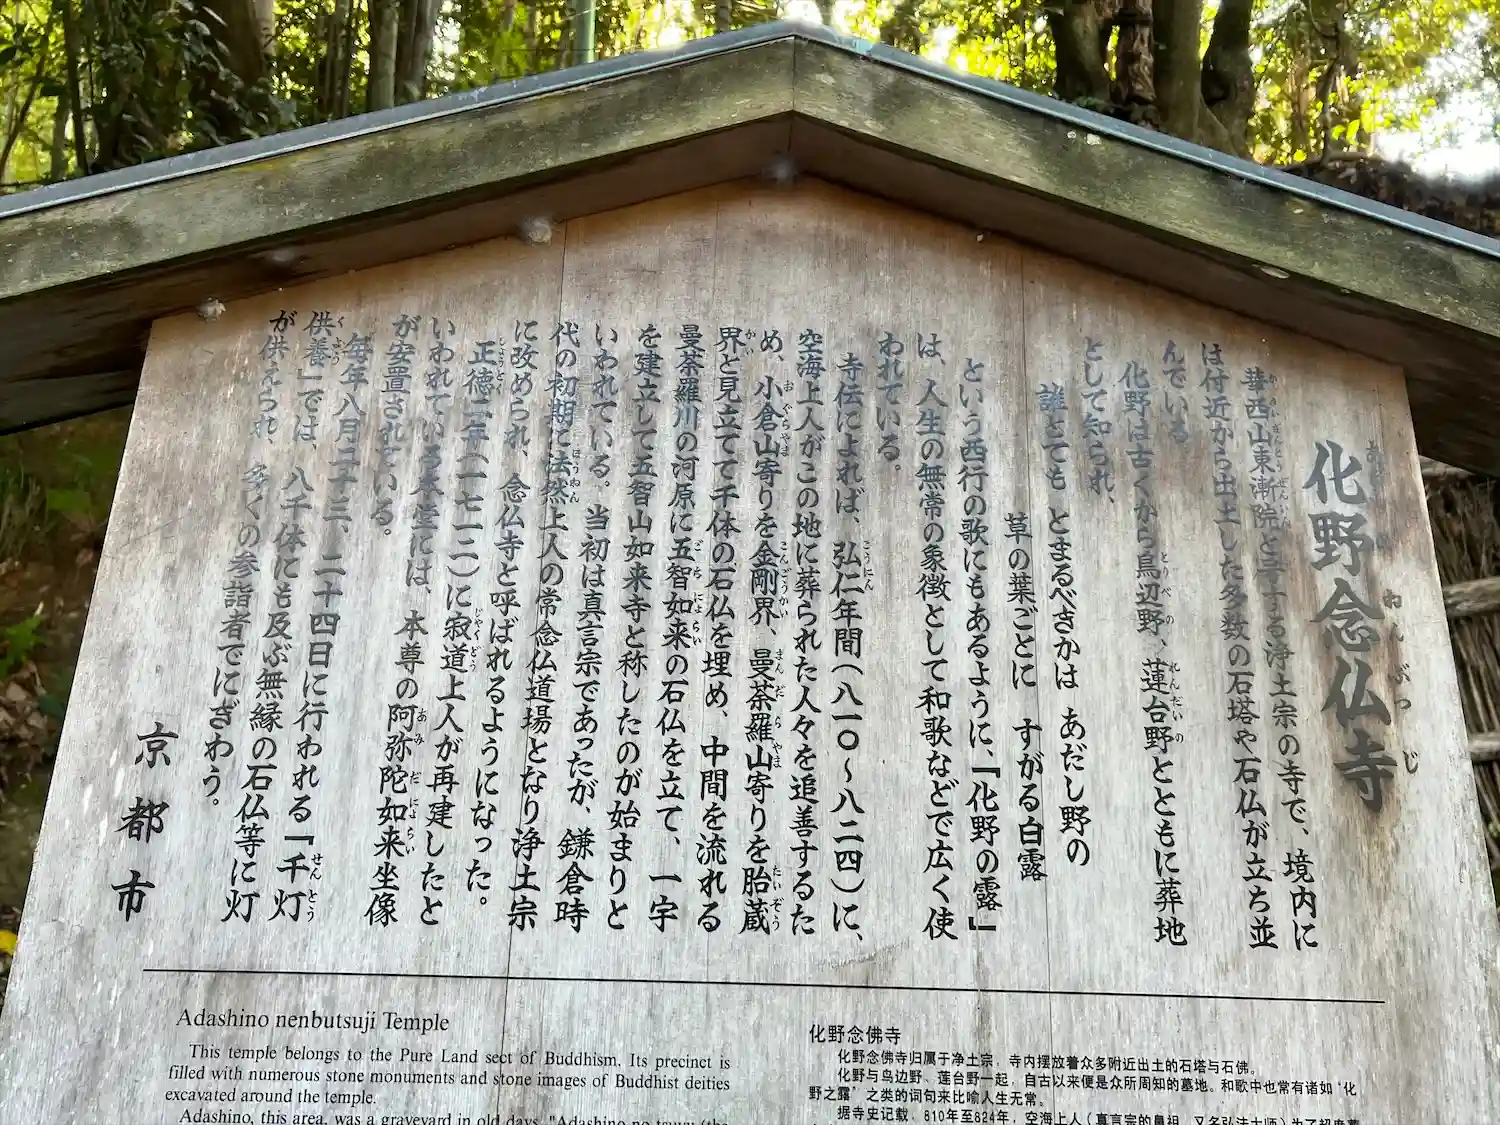 化野念仏寺
あだしのねんぶつじ
華西山東漸院と号する浄土宗の寺で、境内に
は付近から出土した多数の石塔や石仏が立ち並
んでいる。
化野は古くから鳥辺野、蓮台野とともに葬地
として知られ、
誰とても とまるべきかは あだし野の
草の葉ごとに すがる白露
という西行の歌にもあるように、「化野の露」
は、人生の無常の象徴として和歌などで広く使
われている。
寺伝によれば、弘仁年間(八一〇～八二四)に、
空海上人がこの地に葬られた人々を追善するた
め、小倉山寄りを金剛界、曼荼羅山寄りを胎蔵
界と見立てて千体の石仏を埋め、中間を流れる
曼荼羅川の河原に五智如来の石仏を立て、一宇
を建立して五智山如来寺と称したのが始まりと
いわれている。当初は真言宗であったが、鎌倉時
代の初期に法然上人の常念仏道場となり浄土宗
に改められ、念仏寺と呼ばれるようになった。
正徳二年(一七一二)に寂道上人が再建したと
いわれている本堂には、本尊の阿弥陀如来坐像
が安置されている。
毎年八月二十三、二十四日に行われる「千灯
供養」では、八千体にも及ぶ無縁の石仏等に灯
が供えられ、多くの参詣者でにぎわう。
京都市
Adashino nenbutsuji Temple
This temple belongs to the Pure Land sect of Buddhism. Its precinct is
filled with numerous stone monuments and stone images of Buddhist deities
excavated around the temple.
Adashino, this area, was a graveyard in old days. "Adashino no tsuyu (the
化野念佛寺
化野念佛寺归属于净土宗，寺内摆放着众多附近出土的石塔与石佛。
化野与鸟边野、莲台野一起，自古以来便是众所周知的墓地。和歌中也常有诸如‘化
野之露’之类的词句来比喻人生无常。
据寺史记载，810年至824年，空海上人（真言宗的鼻祖，又名弘法大师）为了超度葬